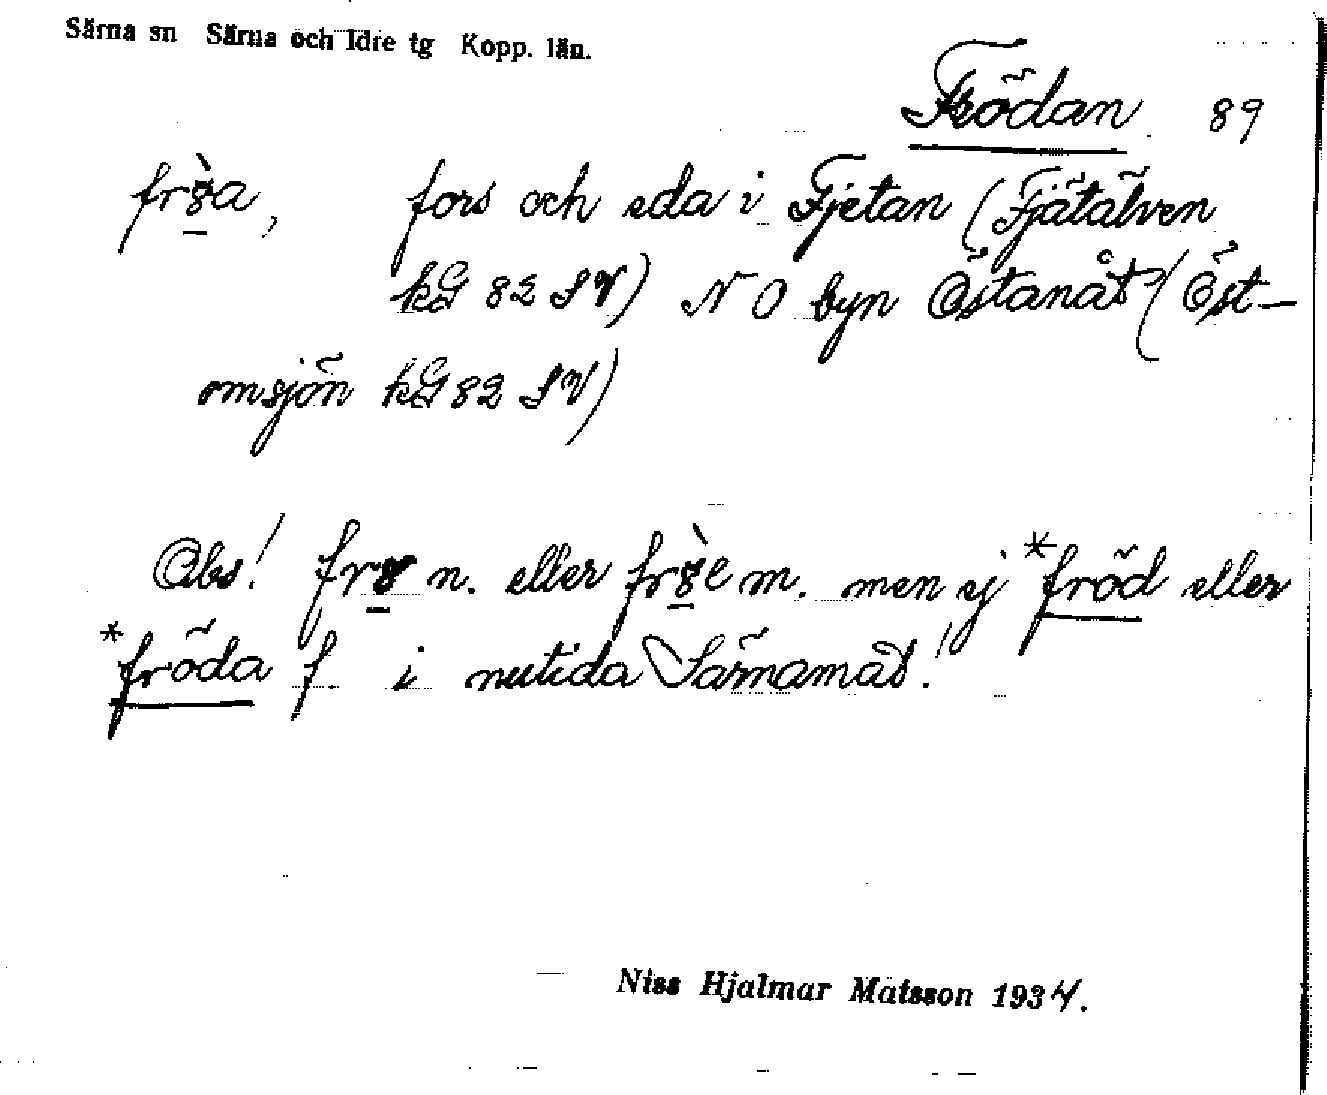 Särna sn Särna och Idre tg Kopp. län.
Frödan 89
frò̱a, fors och eda i Fjetan (Fjätälven
kG 82 SV) NO byn Östanåt (Öst-
omsjön kG 82 SV)
Obs! frö̱ n. eller frö̱̀e m. men ej *fröd eller
*fröda f i nutida Särnamål!
Niss Hjalmar Matsson 1934.